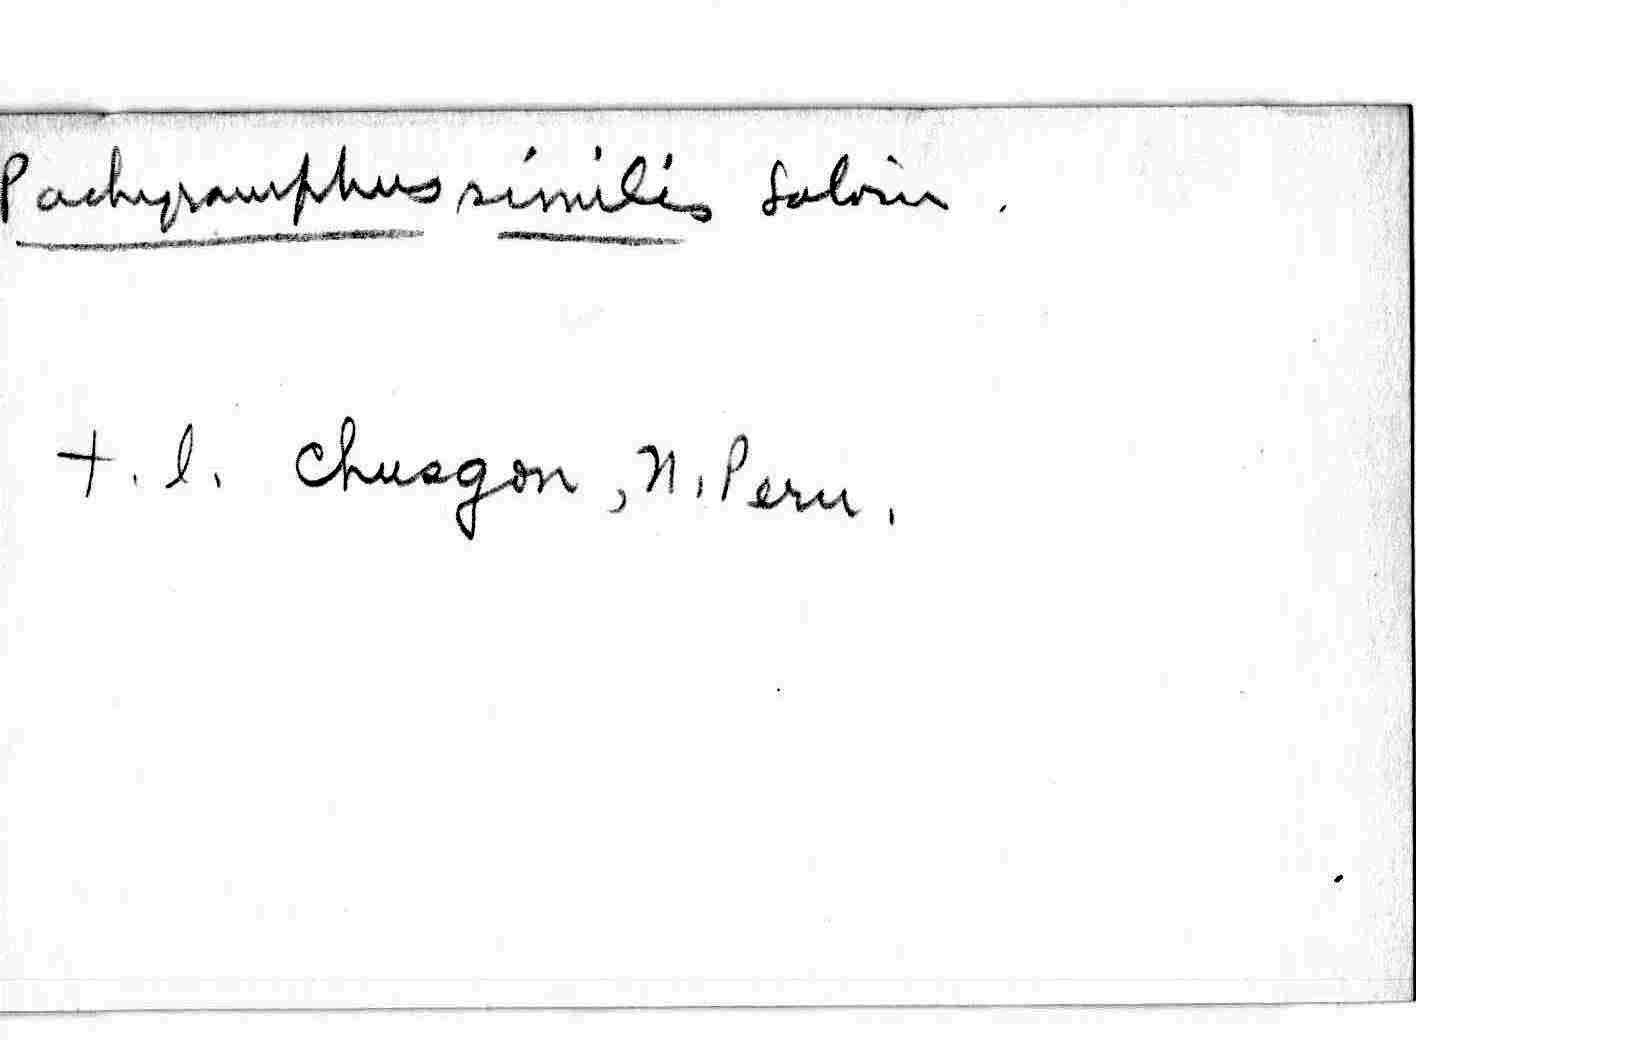 Pachyramphus similis Salvin.
t. l. Chusgon, N. Peru.